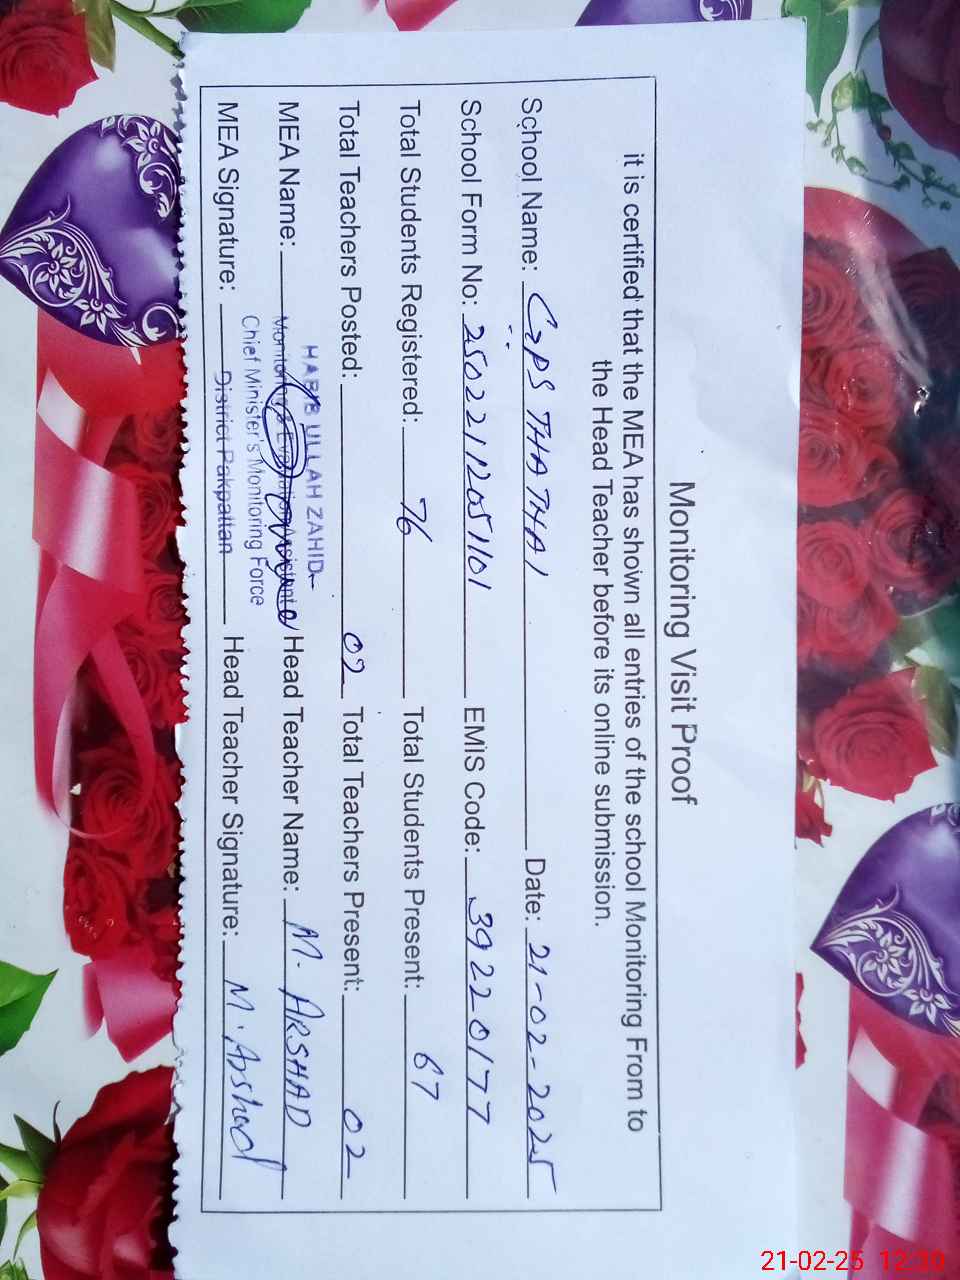 Monitoring Visit Proof
it is certified that the MEA has shown all entries of the school Monitoring From to
the Head Teacher before its online submission.
School Name: GPS THATHAI Date: 21-02-2025
School Form No: 25022112051101 EMiS Code: 39220177
Total Students Registered: 76 Total Students Present: 67
Total Teachers Posted: 02 Total Teachers Present: 02
HABIB ULLAH ZAHID
MEA Name: Monitoring & Evaluation Assistant Head Teacher Name: M. ARSHAD
Chief Minister's Monitoring Force
MEA Signature: District Pakpattan Head Teacher Signature: M. Arshad
21-02-25 12:30